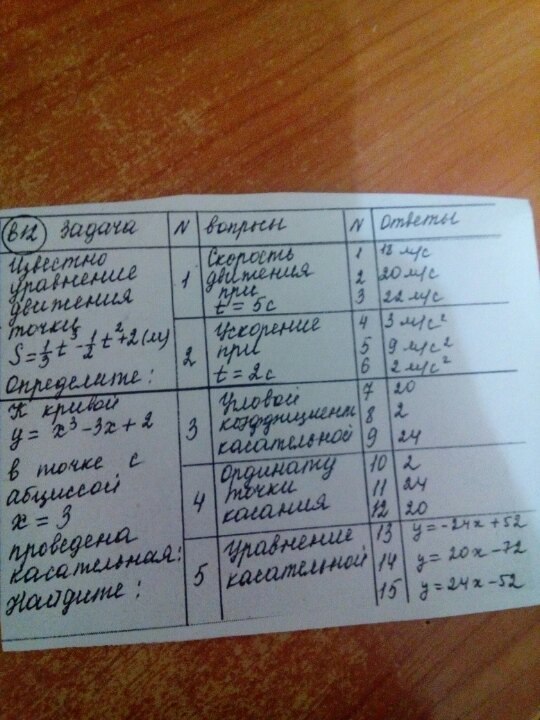 В12 Задача N вопросы N Ответы
Известно
уравнение
движения
точки
S = 1/3 t³ - 1/2 t² + 2 (м)
Определите:
1 Скорость
движения
при
t = 5 с
1 18 м/с
2 20 м/с
3 22 м/с
2 Ускорение
при
t = 2 с
4 3 м/с²
5 9 м/с²
6 2 м/с²
К кривой
y = x³ - 3x + 2
в точке с
абциссой
x = 3
проведена
касательная:
Найдите:
3 Угловой
коэффициент
касательной
7 20
8 2
9 24
4 Ординату
точки
касания
10 2
11 24
12 20
5 Уравнение
касательной
13 y = -24x + 52
14 y = 20x - 72
15 y = 24x - 52